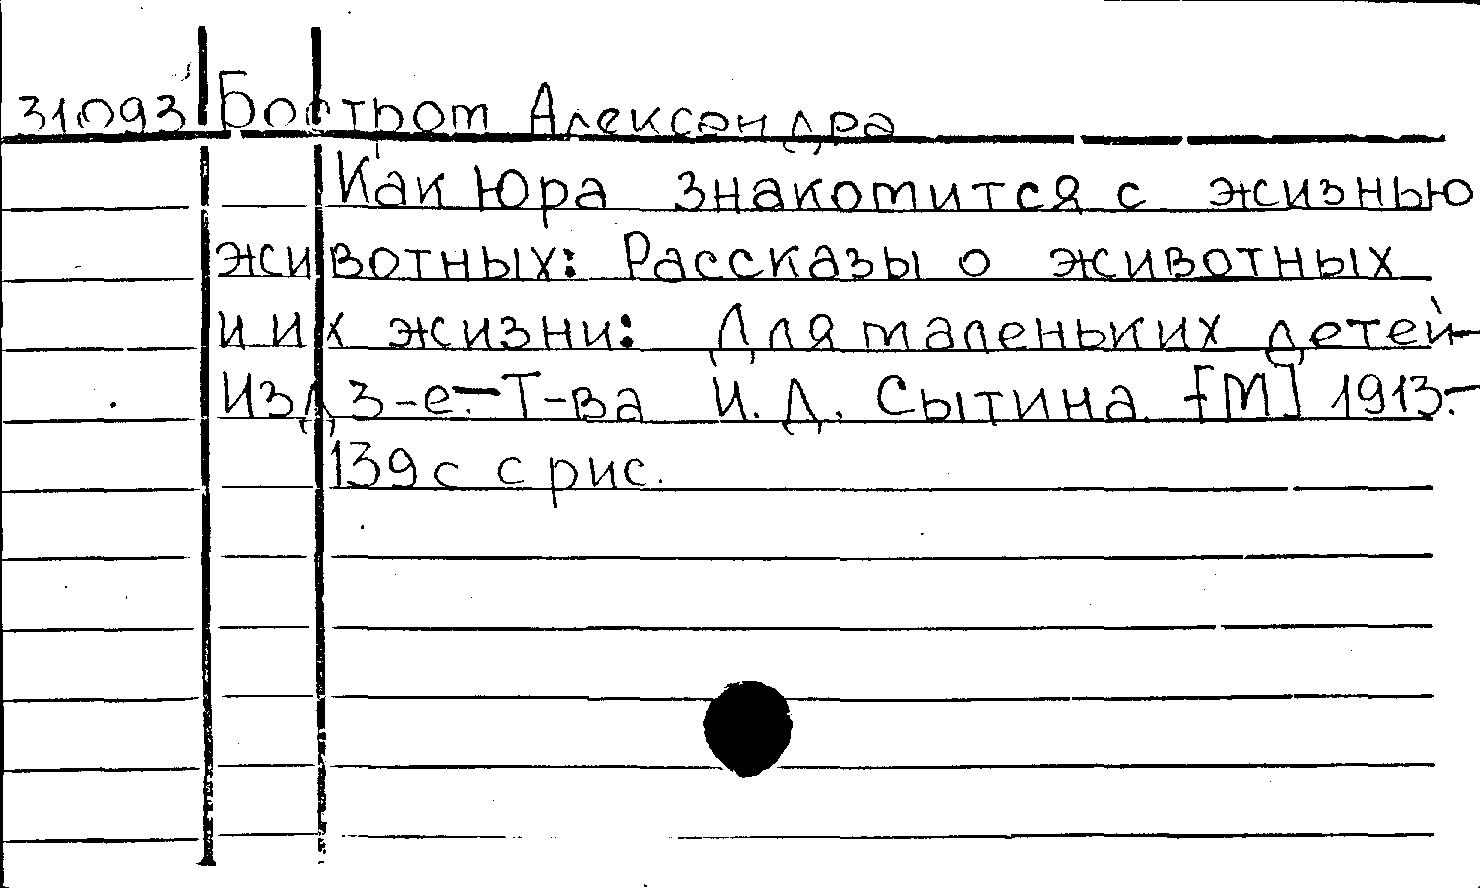 31093 Бостром Александра
Как Юра знакомится с жизнью
животных: Рассказы о животных
и их жизни: Для маленьких детей-
Изд 3-е.-Т-ва И.Д. Сытина [М] 1913.-
139с с рис.